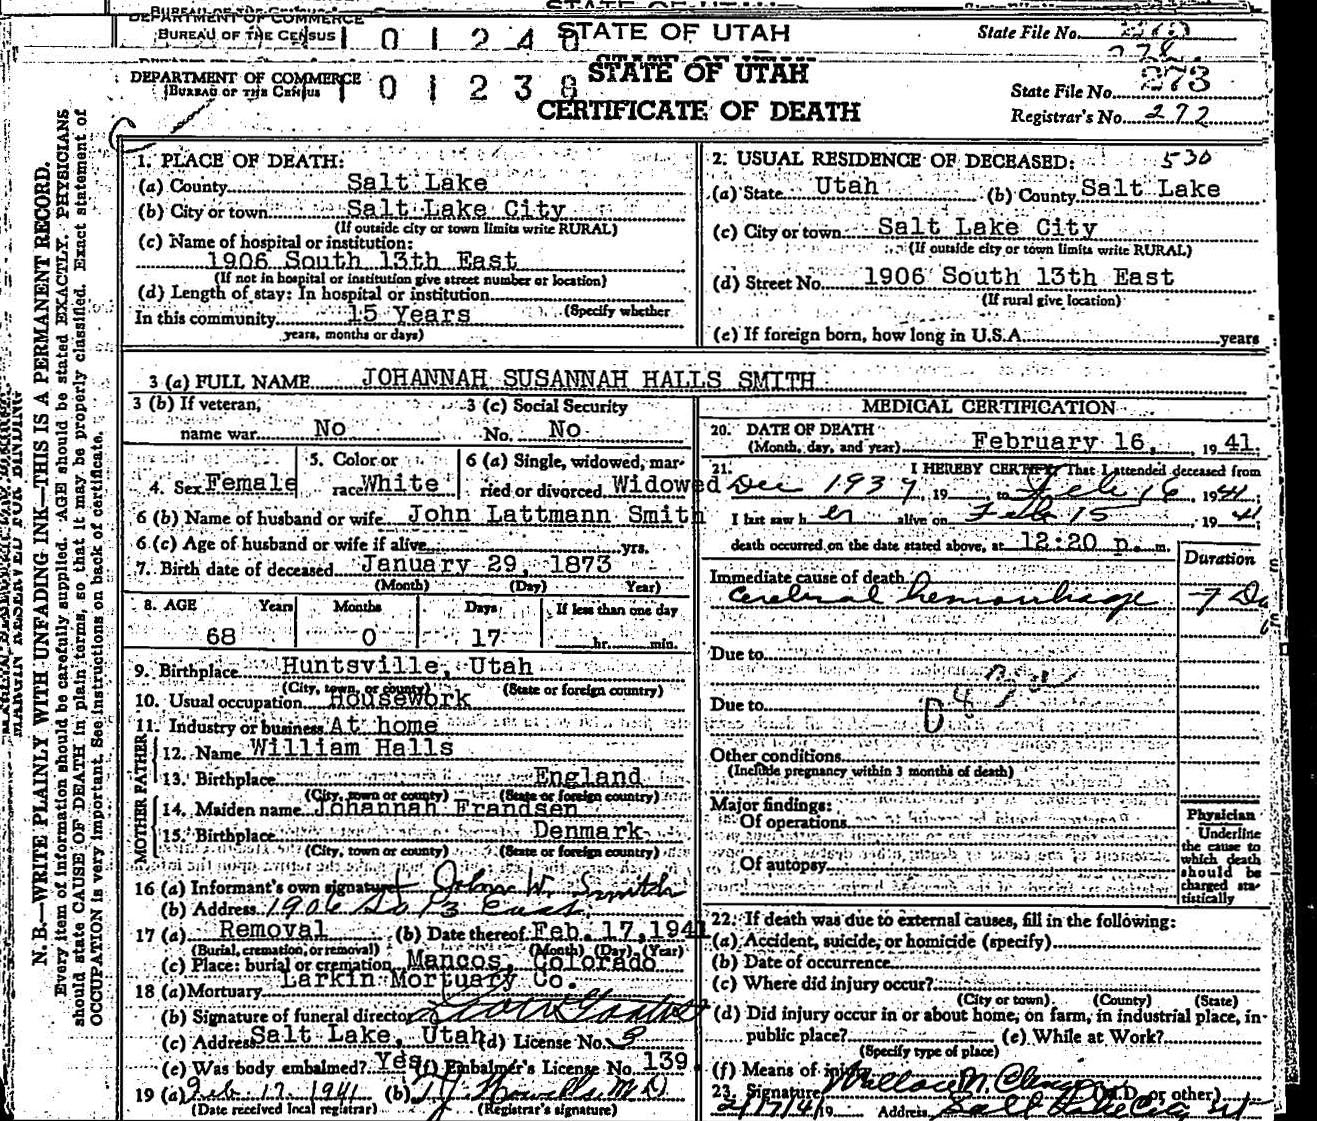 BUREAU OF THE CENSUS
STATE OF UTAH
DEPARTMENT OF COMMERCE
BUREAU OF THE CENSUS
1 0 1 2 4
STATE OF UTAH
State File No.
DEPARTMENT OF COMMERCE
(BUREAU OF THE CENSUS
1 0 1 2 3 8
STATE OF UTAH
CERTIFICATE OF DEATH
State File No. 273
Registrar's No. 272
MARGIN RESERVED FOR BINDING
N. B.—WRITE PLAINLY WITH UNFADING INK—THIS IS A PERMANENT RECORD.
Every item of information should be carefully supplied. AGE should be stated EXACTLY. PHYSICIANS
should state CAUSE OF DEATH in plain terms, so that it may be properly classified. Exact statement of
OCCUPATION is very important. See instructions on back of certificate.
1. PLACE OF DEATH:
(a) County Salt Lake
(b) City or town Salt Lake City
(If outside city or town limits write RURAL)
(c) Name of hospital or institution:
1906 South 13th East
(If not in hospital or institution give street number or location)
(d) Length of stay: In hospital or institution
In this community 15 Years (Specify whether
years, months or days)
2. USUAL RESIDENCE OF DECEASED: 530
(a) State Utah (b) County Salt Lake
(c) City or town Salt Lake City
(If outside city or town limits write RURAL)
(d) Street No. 1906 South 13th East
(If rural give location)
(e) If foreign born, how long in U.S.A. years
3 (a) FULL NAME JOHANNAH SUSANNAH HALLS SMITH
3 (b) If veteran,
name war No
3 (c) Social Security
No. No
4. Sex Female
5. Color or
race White
6 (a) Single, widowed, mar-
ried or divorced Widowed
6 (b) Name of husband or wife John Lattmann Smith
6 (c) Age of husband or wife if alive yrs.
7. Birth date of deceased January 29, 1873
(Month) (Day) Year)
8. AGE Years Months Days If less than one day
68 0 17 hr. min.
9. Birthplace Huntsville, Utah
(City, town, or county) (State or foreign country)
10. Usual occupation Housework
11. Industry or business At home
FATHER
12. Name William Halls
13. Birthplace England
(City, town or county) (State or foreign country)
MOTHER
14. Maiden name Johannah Frandsen
15. Birthplace Denmark
(City, town or county) (State or foreign country)
16 (a) Informant's own signature John W. Smith
(b) Address 1906 So 13 East
17 (a) Removal (b) Date thereof Feb. 17, 1941
(Burial, cremation, or removal) (Month) (Day) (Year)
(c) Place: burial or cremation Mancos, Colorado
18 (a) Mortuary Larkin Mortuary Co.
(b) Signature of funeral director
(c) Address Salt Lake, Utah (d) License No. 9
(e) Was body embalmed? Yes (f) Embalmer's License No. 139
19 (a) Feb. 17, 1941 (b) T.J. Howells M.D
(Date received local registrar) (Registrar's signature)
MEDICAL CERTIFICATION
20. DATE OF DEATH
(Month, day, and year) February 16, 1941.
21. I HEREBY CERTIFY That I attended deceased from
Dec 1939, 19 to Feb 16, 1941;
I last saw her alive on Feb 15, 1941
death occurred on the date stated above, at 12:20 p. m.
Duration
Immediate cause of death
Cerebral hemorrhage 7 Da
Due to
Due to
Other conditions
(Include pregnancy within 3 months of death)
Major findings:
Of operations
Of autopsy
Physician
Underline
the cause to
which death
should be
charged sta-
tistically
22. If death was due to external causes, fill in the following:
(a) Accident, suicide, or homicide (specify)
(b) Date of occurrence
(c) Where did injury occur?
(City or town) (County) (State)
(d) Did injury occur in or about home, on farm, in industrial place, in
public place? (e) While at Work?
(Specify type of place)
(f) Means of injury
23. Signature (M.D. or other)
2/17/41 19 Address Salt Lake City Ut